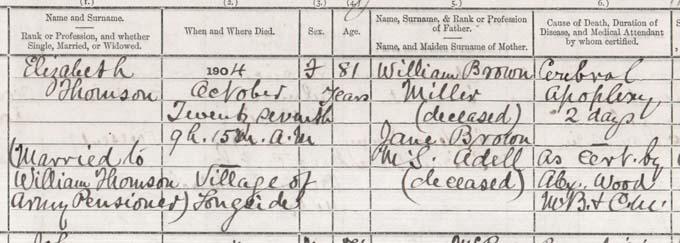 (1.) (2.) (3.) (4.) 5. 6.
Name and Surname.
Rank or Profession, and whether
Single, Married, or Widowed.
When and Where Died.
Sex.
Age.
Name, Surname, & Rank or Profession
of Father.
Name, and Maiden Surname of Mother.
Cause of Death, Duration of
Disease, and Medical Attendant
by whom certified.
Elizabeth
Thomson
(Married to
William Thomson
Army Pensioner)
1904
October
Twenty seventh
9h. 15m. A.M
Village of
Longside
F
81
Years
William Brown
Miller
(deceased)
Jane Brown
M.S. Adell
(deceased)
Cerebral
Apoplexy
2 days
as Cert. by
Alex. Wood
M.B. & C.M.